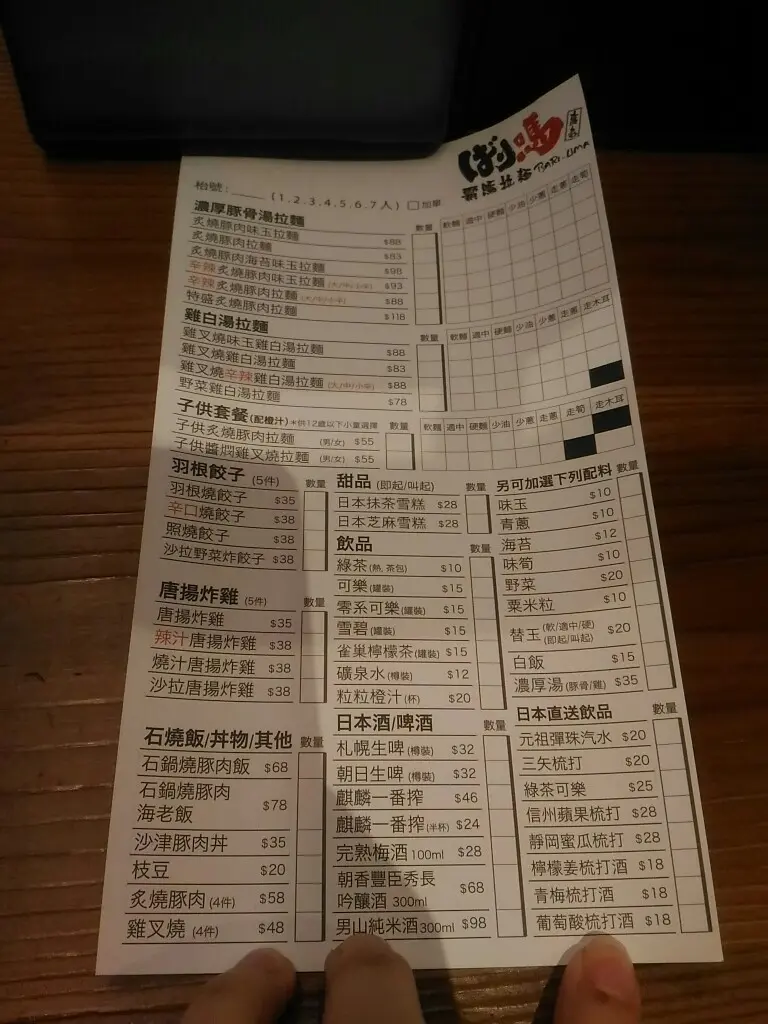 ばり嗎
BARI-UMA
枱號: ____ (1.2.3.4.5.6.7人) □加單
濃厚豚骨湯拉麵 數量 軟麵 適中 硬麵 少油 少蔥 走蔥 走筍
炙燒豚肉味玉拉麵 $88
炙燒豚肉拉麵 $83
炙燒豚肉海苔味玉拉麵 $98
辛辣炙燒豚肉味玉拉麵 (大/中/小辛) $93
辛辣炙燒豚肉拉麵 (大/中/小辛) $88
特盛炙燒豚肉拉麵 $118
雞白湯拉麵 數量 軟麵 適中 硬麵 少油 少蔥 走蔥 走木耳
雞叉燒味玉雞白湯拉麵 $88
雞叉燒雞白湯拉麵 $83
雞叉燒辛辣雞白湯拉麵 (大/中/小辛) $88
野菜雞白湯拉麵 $78
子供套餐 (配橙汁) *供12歲以下小童選擇 數量 軟麵 適中 硬麵 少油 少蔥 走蔥 走筍 走木耳
子供炙燒豚肉拉麵 (男/女) $55
子供醬燜雞叉燒拉麵 (男/女) $55
羽根餃子 (5件) 數量
羽根燒餃子 $35
辛口燒餃子 $38
照燒餃子 $38
沙拉野菜炸餃子 $38
唐揚炸雞 (5件) 數量
唐揚炸雞 $35
辣汁唐揚炸雞 $38
燒汁唐揚炸雞 $38
沙拉唐揚炸雞 $38
石燒飯/丼物/其他 數量
石鍋燒豚肉飯 $68
石鍋燒豚肉
海老飯 $78
沙津豚肉丼 $35
枝豆 $20
炙燒豚肉 (4件) $58
雞叉燒 (4件) $48
甜品 (即起/叫起) 數量
日本抹茶雪糕 $28
日本芝麻雪糕 $28
飲品 數量
綠茶 (熱, 茶包) $10
可樂 (罐裝) $15
零系可樂 (罐裝) $15
雪碧 (罐裝) $15
雀巢檸檬茶 (罐裝) $15
礦泉水 (樽裝) $12
粒粒橙汁 (杯) $20
日本酒/啤酒 數量
札幌生啤 (樽裝) $32
朝日生啤 (樽裝) $32
麒麟一番搾 $46
麒麟一番搾 (半杯) $24
完熟梅酒 100ml $28
朝香豐臣秀長
吟釀酒 300ml $68
男山純米酒 300ml $98
另可加選下列配料 數量
味玉 $10
青蔥 $10
海苔 $12
味筍 $10
野菜 $20
粟米粒 $10
替玉 (軟/適中/硬) (即起/叫起) $20
白飯 $15
濃厚湯 (豚骨/雞) $35
日本直送飲品 數量
元祖彈珠汽水 $20
三矢梳打 $20
綠茶可樂 $25
信州蘋果梳打 $28
靜岡蜜瓜梳打 $28
檸檬姜梳打酒 $18
青梅梳打酒 $18
葡萄酸梳打酒 $18